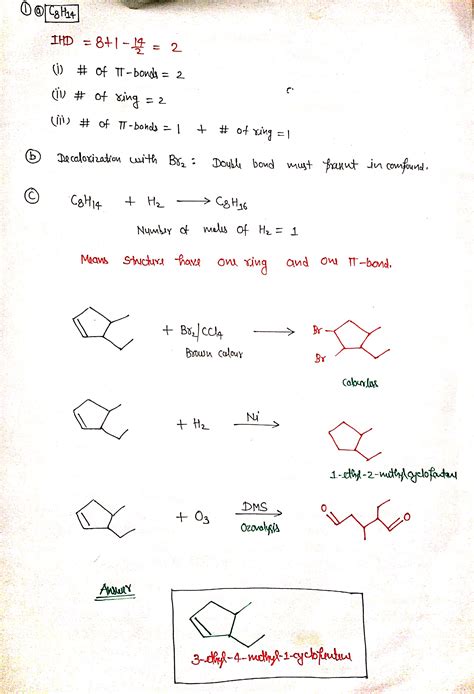 ① ⓐ C8H14
IHD = 8+1-14/2 = 2
(i) # of π-bonds = 2
(ii) # of ring = 2
(iii) # of π-bonds = 1 + # of ring = 1
ⓑ Decolorization with Br2 : Double bond must present in compound.
ⓒ C8H14 + H2 → C8H16
Number of moles of H2 = 1
Means structure have one ring and one π-bond.
+ Br2/CCl4 → Br
Brown colour Br
Colourless
+ H2 Ni →
1-ethyl-2-methylcyclopentane
+ O3 DMS → O O
Ozonolysis
Answer
3-ethyl-4-methyl-1-cyclopentene